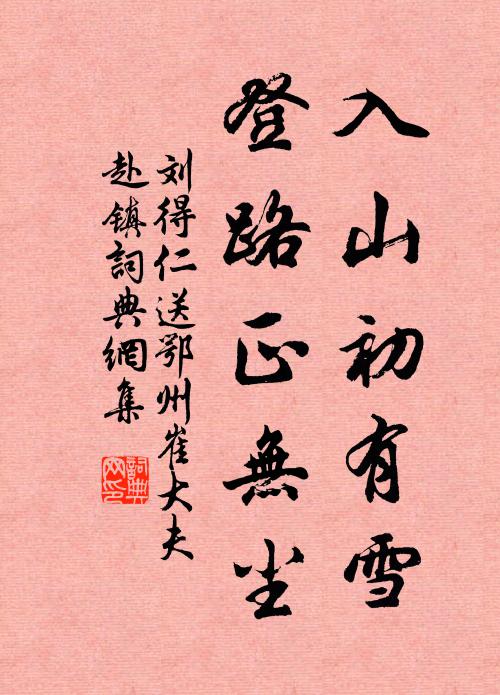 入山初有雪
登路正無尘
刘得仁送鄂州崔大夫
赴镇詞典網集
詞典網印